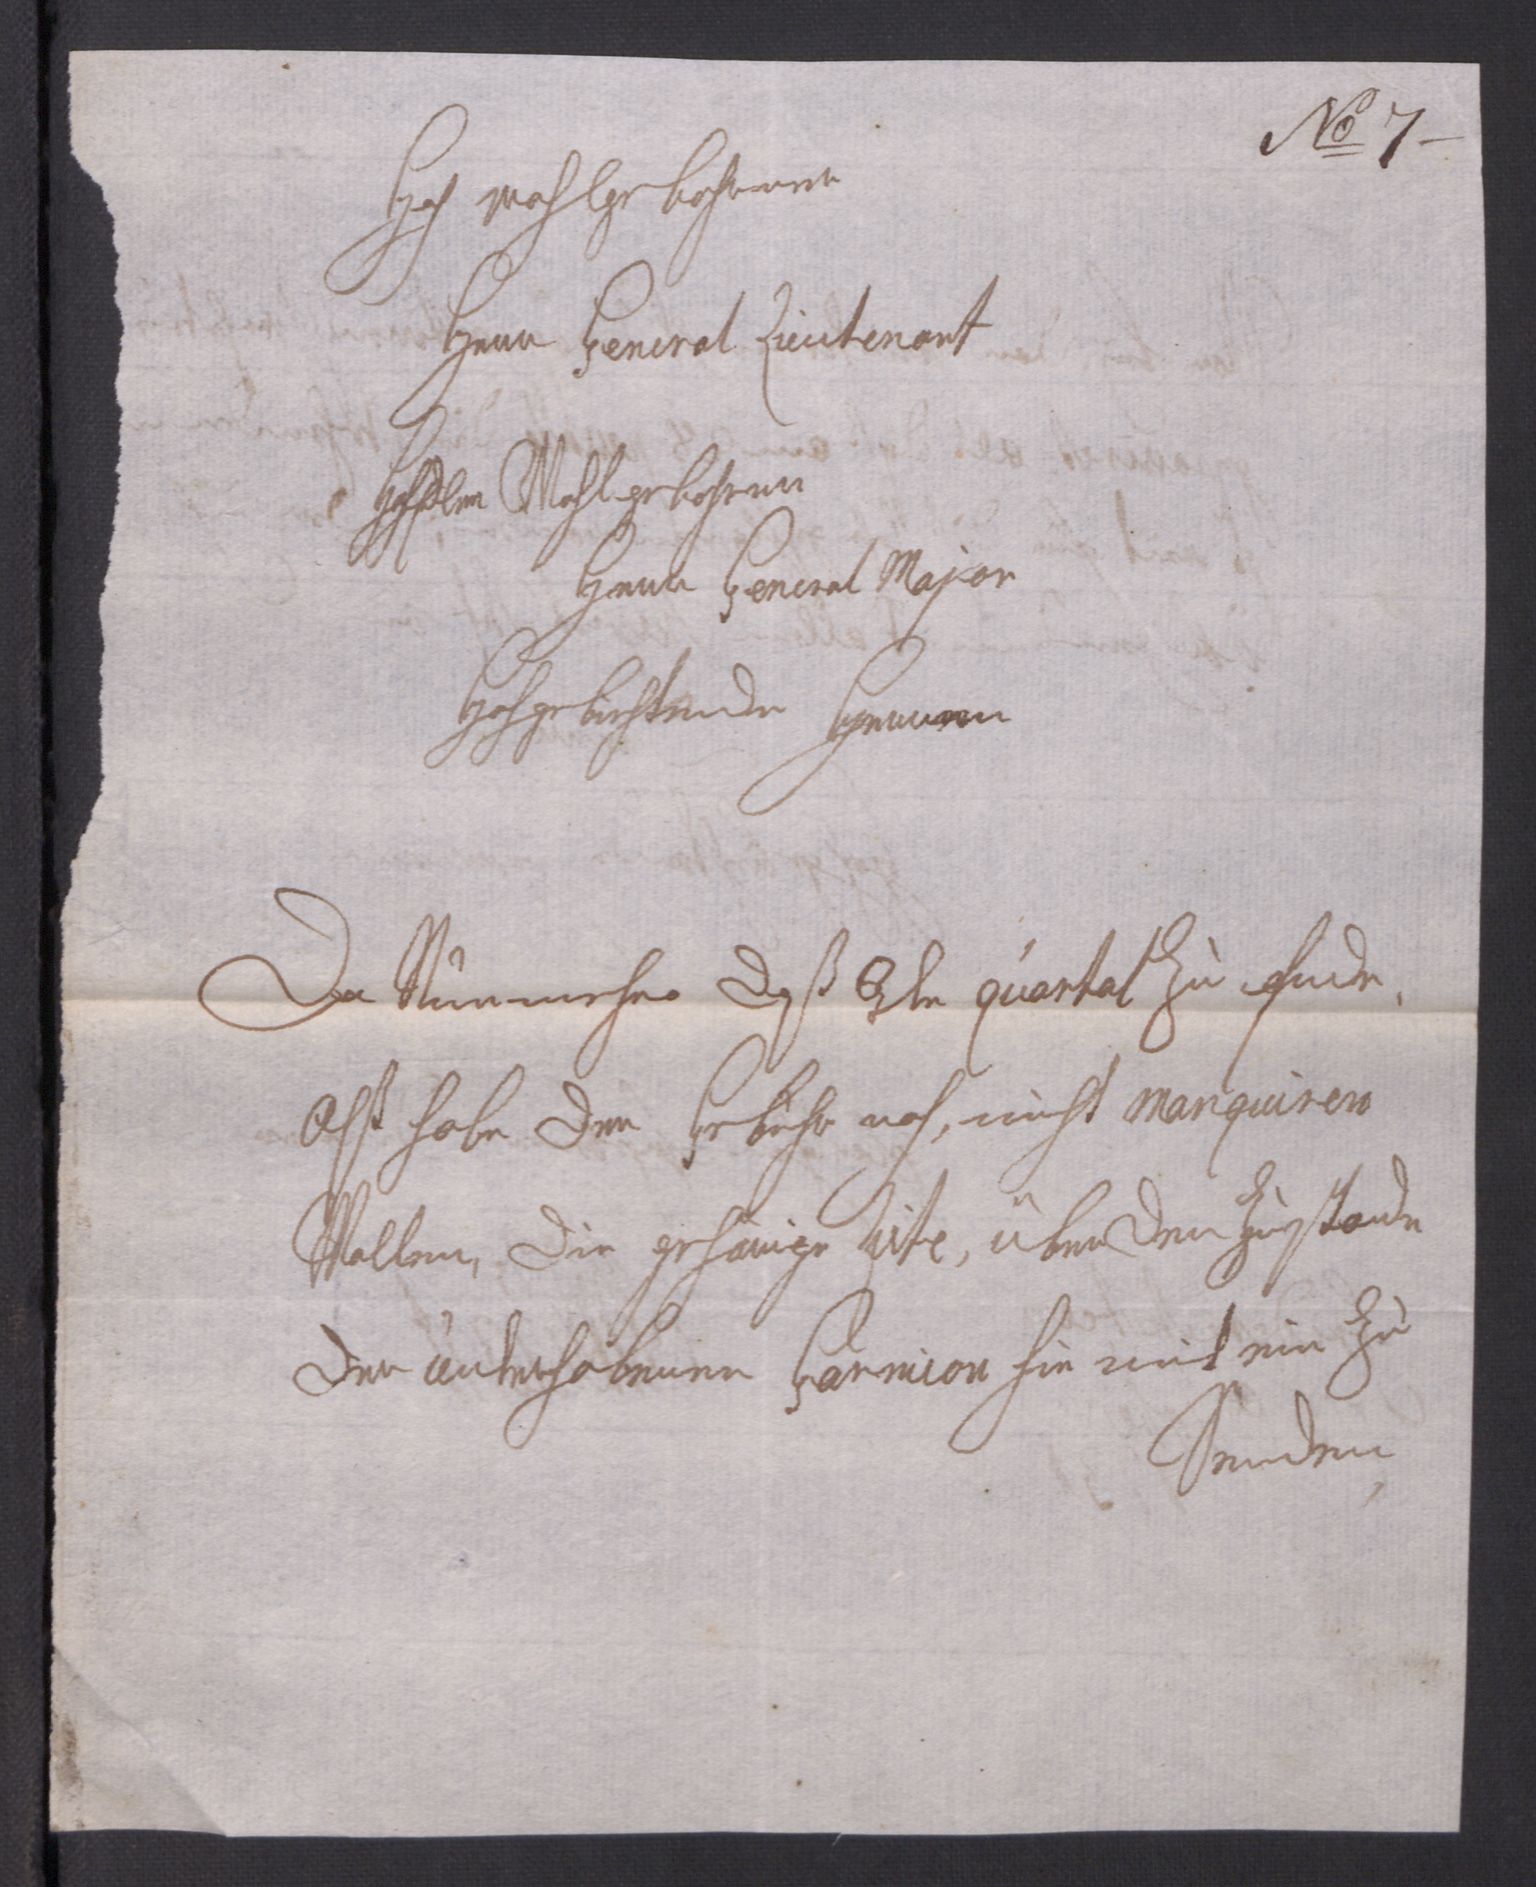 No 7
Hoch wohlgebohrner
Herr General Lieutenant
Wohlgebohrner
Herr General Major
Hochgebiethende Herrren
Da Nunmehro daß 3te quartal zu Ende,
Alß habe der Gebühr nach, nicht manquiren
Wollen, die gehörige liste, über den Zustande
der unterhabenen Garnison hie mit ein zu
Senden,